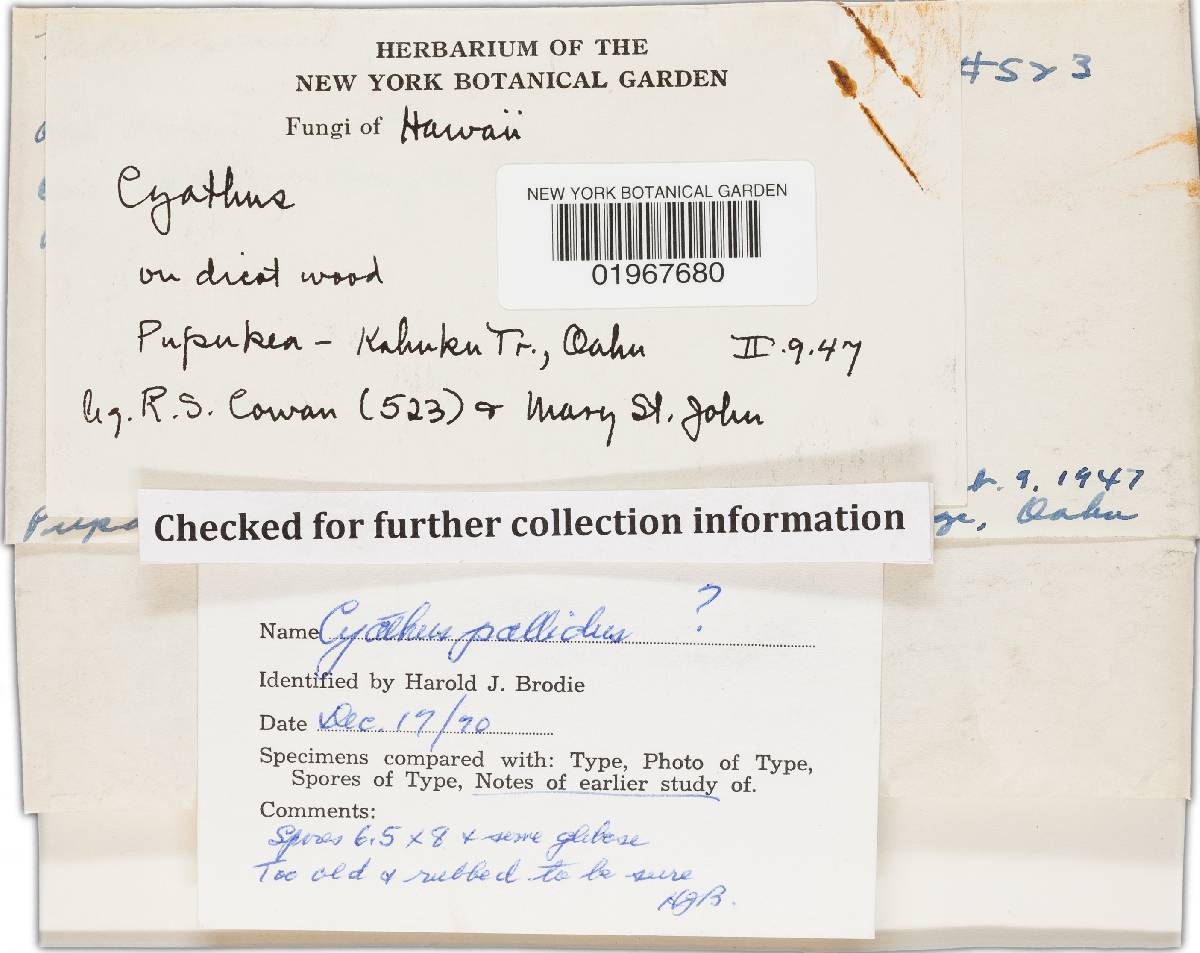 HERBARIUM OF THE
NEW YORK BOTANICAL GARDEN
Fungi of Hawaii
#523
Cyathus
NEW YORK BOTANICAL GARDEN
01967680
on dicot wood
Pupukea - Kahuku Tr., Oahu II.9.47
leg. R.S. Cowan (523) & Mary St. John
9, 1947
Oahu
Checked for further collection information
Name Cyathus pallidus ?
Identified by Harold J. Brodie
Date Dec. 17/70
Specimens compared with: Type, Photo of Type,
Spores of Type, Notes of earlier study of.
Comments:
Spores 6.5 x 8 & some globose
Too old & rubbed to be sure
HJB.